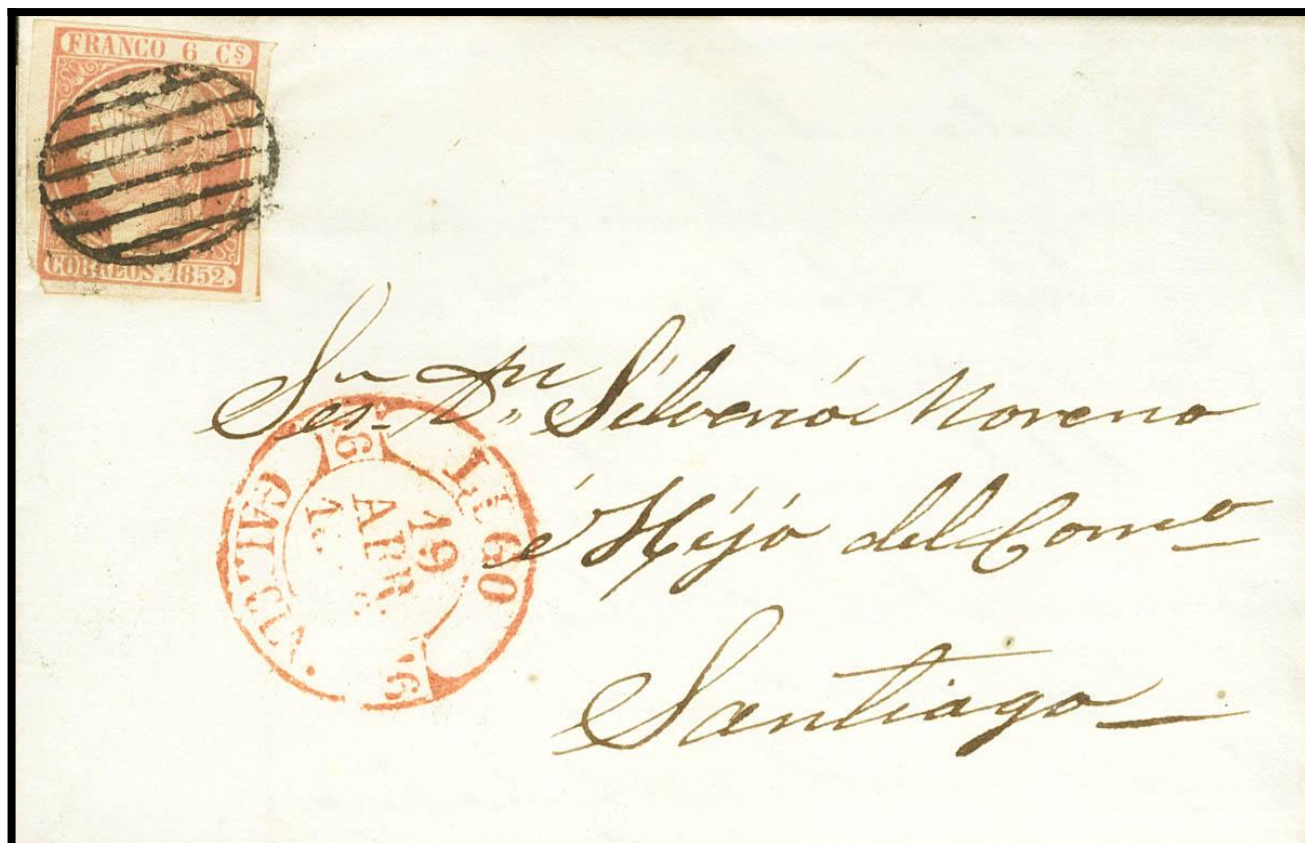 FRANCO 6 Cs
CORREOS. 1852.
Sr. Dn. Silverio Moreno
é Hijo del Como
Santiago
LUGO
19
ABR.
GALICIA.